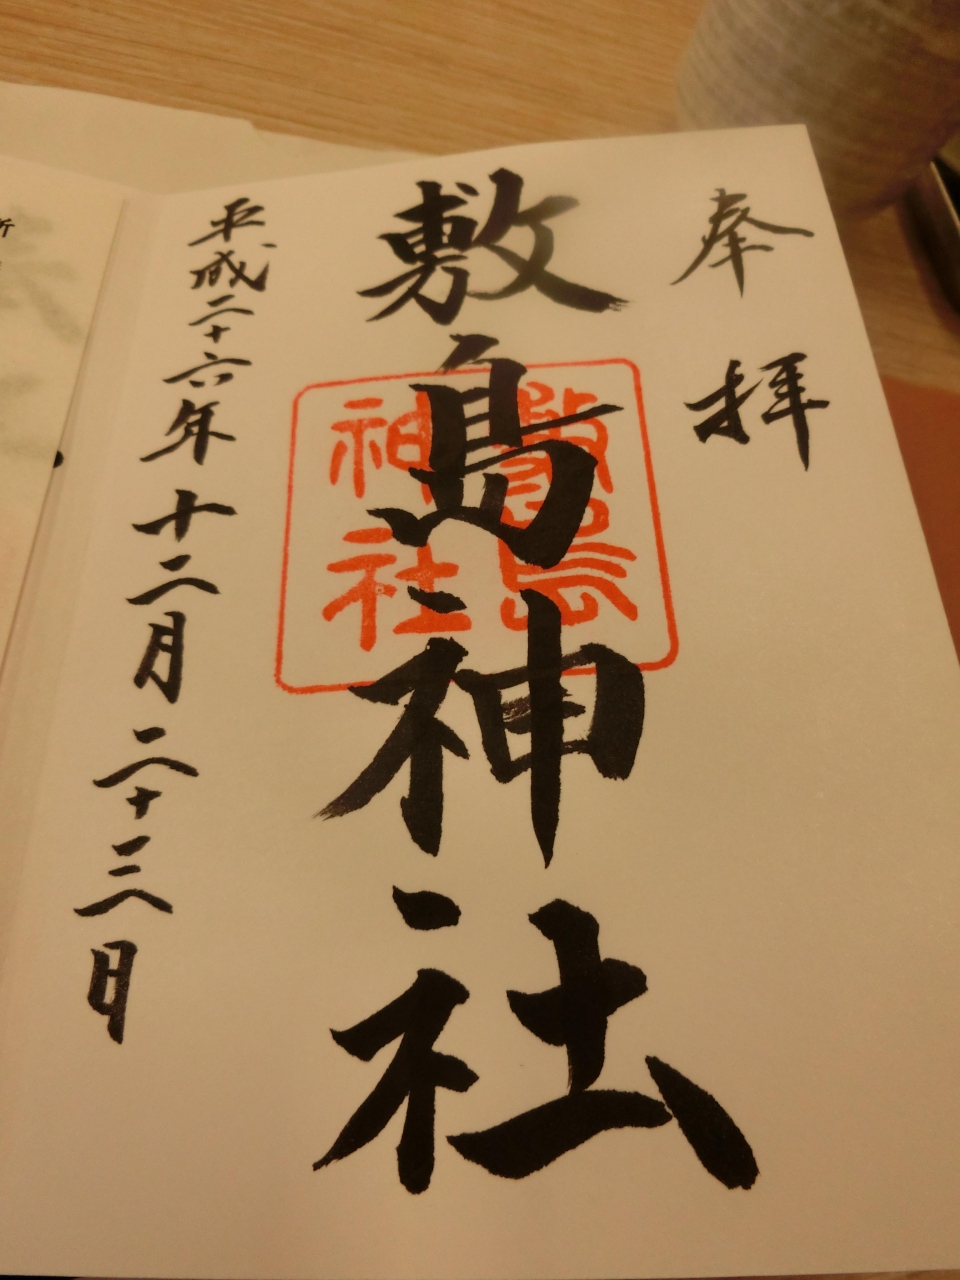 奉拝
敷島神社
敷島
神社
平成二十六年十二月二十三日